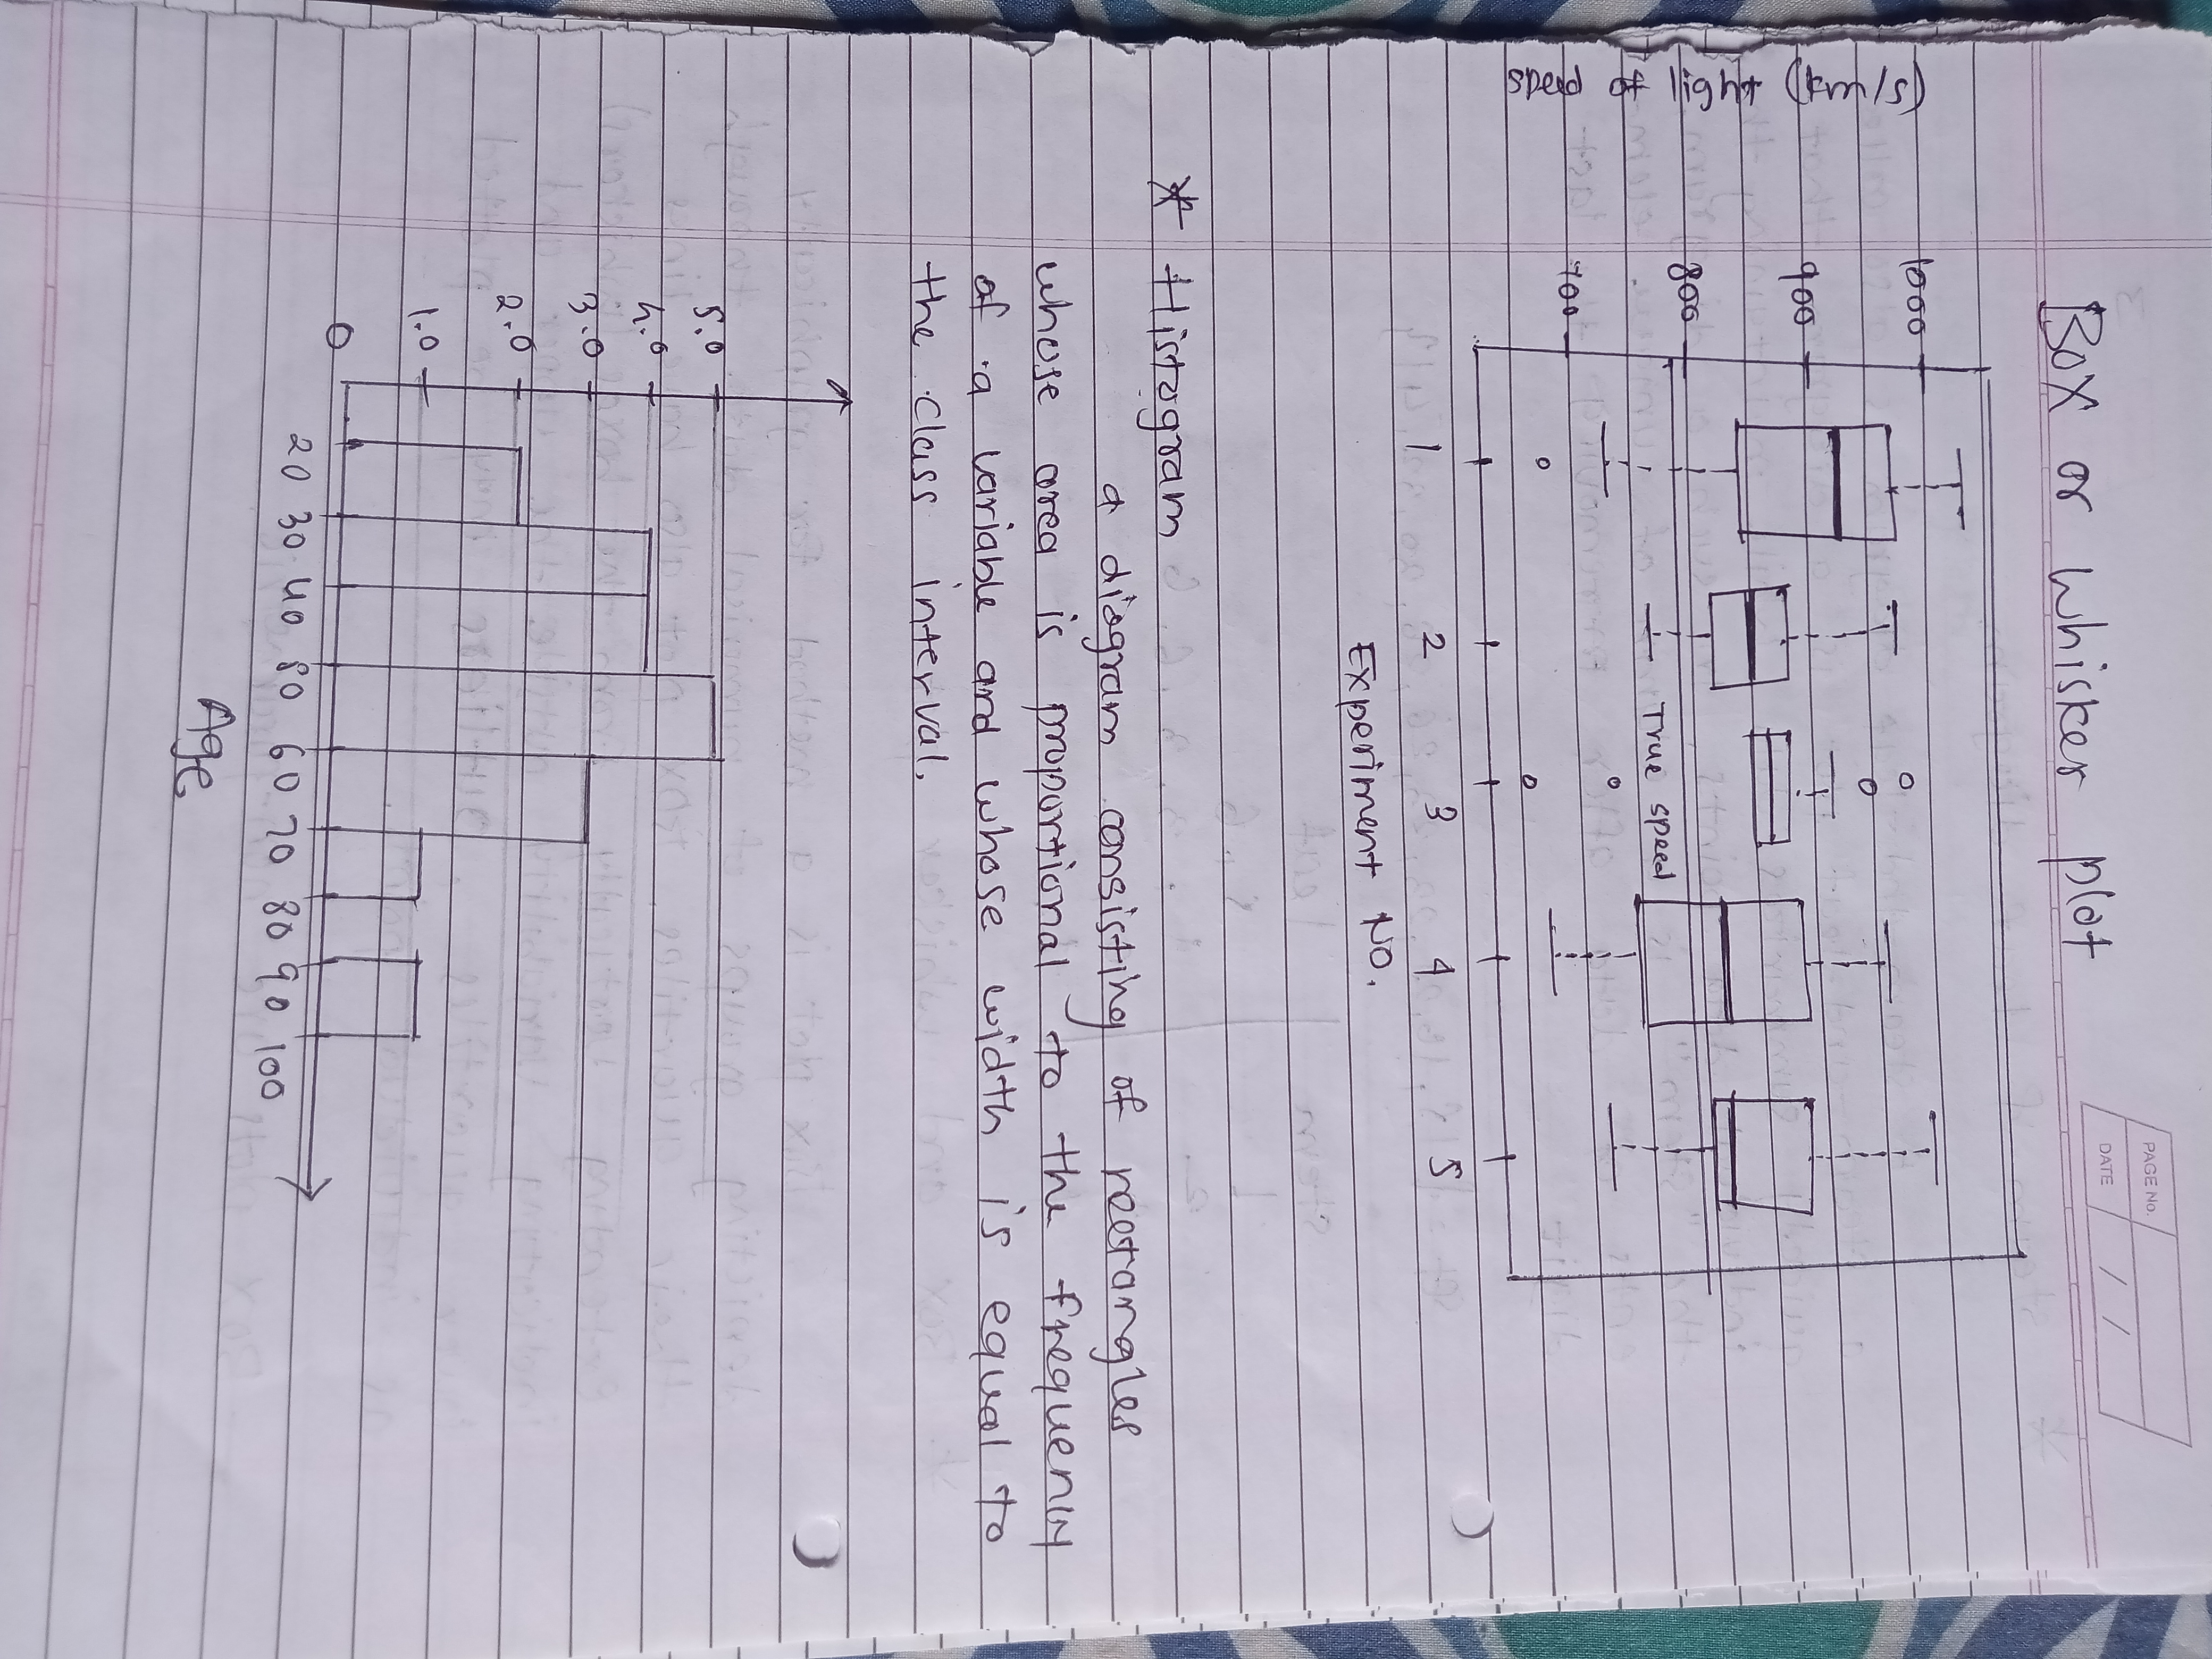 PAGE No.
DATE / /
Box or whisker plot
speed of light (km/s)
1000
900
800
True speed
700
1 2 3 4 5
Experiment NO.
* Histogram
a diagram consisting of rectangles
whose area is proportional to the frequency
of a variable and whose width is equal to
the class interval.
5.0
4.0
3.0
2.0
1.0
0
20 30 40 50 60 70 80 90 100
Age